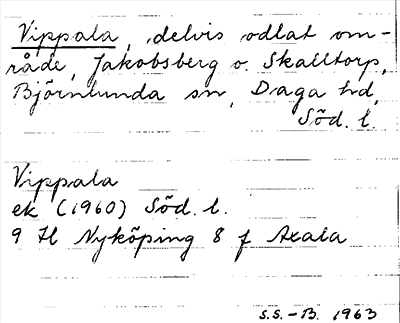 Vippala, delvis odlat om-
råde, Jakobsberg o. Skalltorp,
Björnlunda sn, Daga hd,
Söd. l.
Vippala
ek (1960) Söd. l.
9 H Nyköping 8 f Axala
S.S.-B. 1963